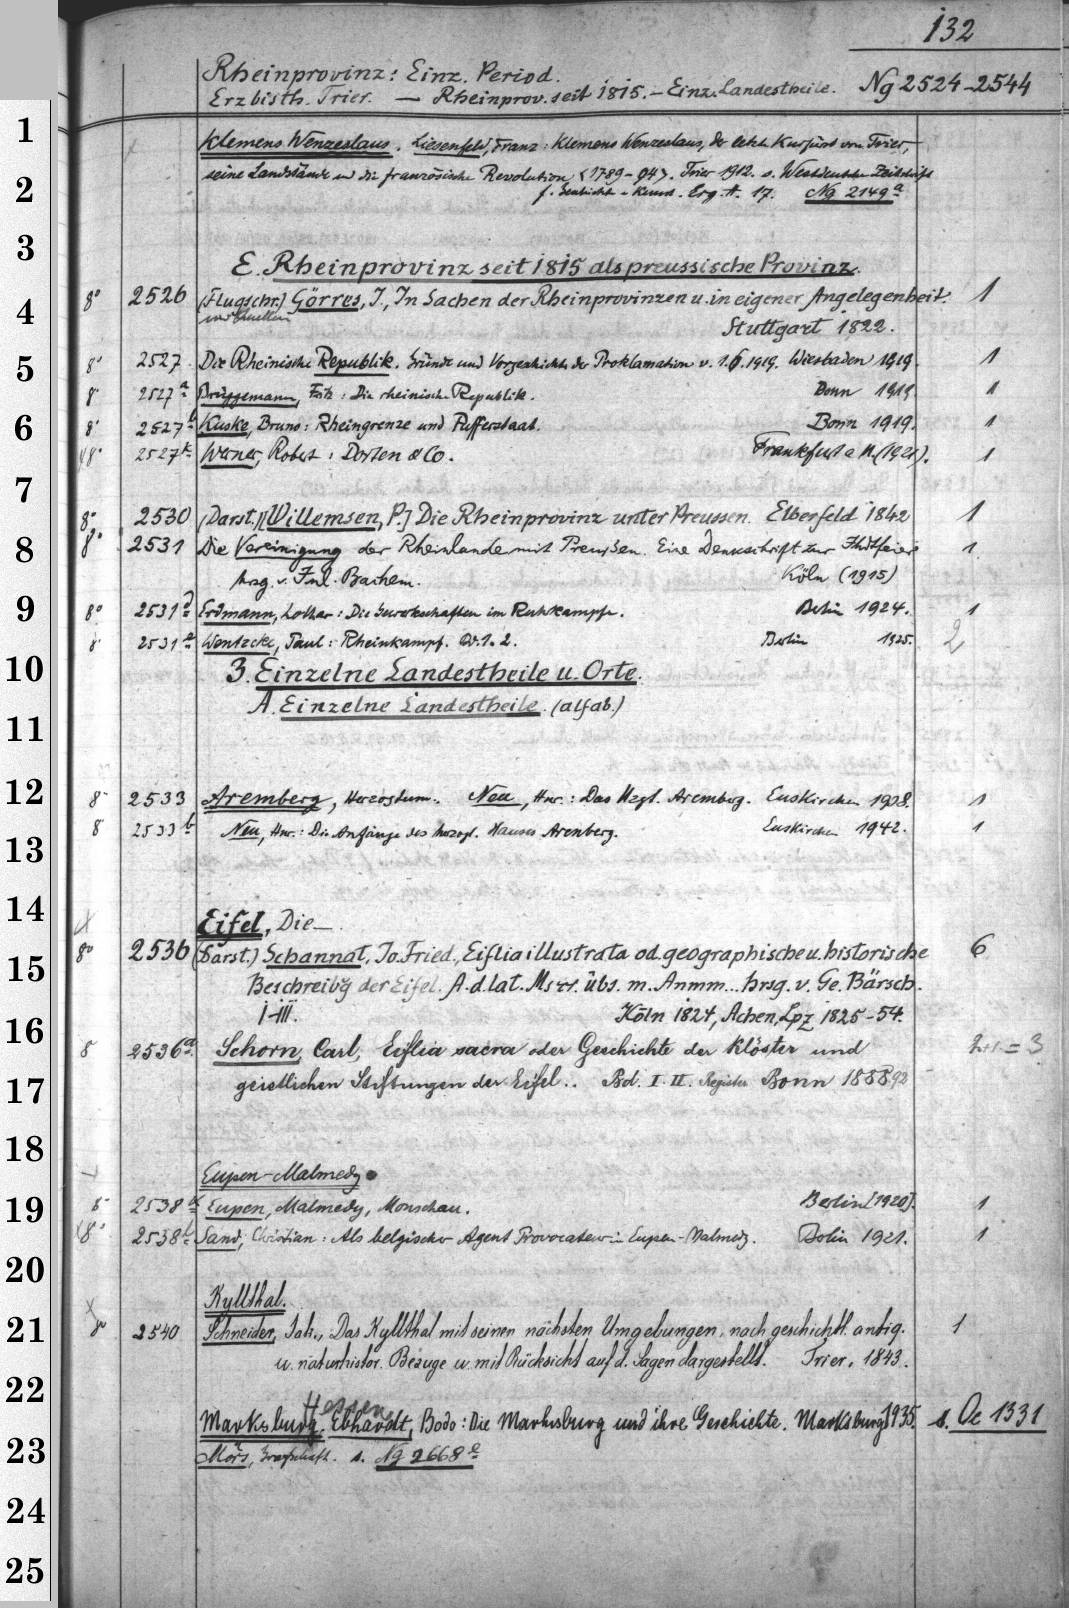 132
Rheinprovinz: Einz. Period.
Erzbisth. Trier. — Rheinprov. seit 1815. — Einz. Landestheile. Ng 2524-2544
1
Klemens Wenzeslaus. Liesenfeld, Franz: Klemens Wenzeslaus, der letzte Kurfürst von Trier,
2
seine Landstände und die französische Revolution <1789-94>. Trier 1912. s. Westdeutsche Zeitschrift
f. Geschichte u. Kunst. Erg. H. 17. Ng 2149a
3
E. Rheinprovinz seit 1815 als preussische Provinz.
4
8° 2526 (Flugschr.) Görres, J., In Sachen der Rheinprovinzen u. in eigener Angelegenheit. 1
und Quellen
Stuttgart 1822.
5
8° 2527 Die Rheinische Republik. Gründe und Vorgeschichte der Proklamation v. 1.6.1919. Wiesbaden 1919. 1
8° 2527a Brüggemann, Fritz: Die rheinische Republik. Bonn 1919. 1
6
8° 2527b Kuske, Bruno: Rheingrenze und Pufferstaat. Bonn 1919. 1
48° 2527k Werner, Robert: Dorten & Co. Frankfurt a M. (1921). 1
7
8° 2530 (Darst.) [Willemsen, P.] Die Rheinprovinz unter Preussen. Elberfeld 1842 1
8
8° 2531 Die Vereinigung der Rheinlande mit Preußen. Eine Denkschrift zur Jhdtfeier 1
hrsg. v. Jul. Bachem. Köln (1915)
9
8° 2531d Erdmann, Lothar: Die Gewerkschaften im Ruhrkampfe. Berlin 1924. 1
8° 2531e Wentzcke, Paul: Rheinkampf. Bd. 1. 2. Berlin 1925. 2
10
3. Einzelne Landestheile u. Orte.
A. Einzelne Landestheile. (alfab.)
11
12
8° 2533 Aremberg, Herzogtum. Neu, Hnr.: Das Hzgt. Aremberg. Euskirchen 1938. 1
8 2533b Neu, Hnr.: Die Anfänge des herzogl. Hauses Arenberg. Euskirchen 1942. 1
13
14
Eifel, Die —.
8° 2536 (Darst.) Schannat, Jo. Fried., Eiflia illustrata od. geographische u. historische 6
15
Beschreibg der Eifel. A. d. lat. Mscr. übs. m. Anmm... hrsg. v. Ge. Bärsch.
I-III. Köln 1824, Achen, Lpz 1825-54.
16
8 2536a Schorn, Carl, Eiflia sacra oder Geschichte der Klöster und 2+1 = 3
17
geistlichen Stiftungen der Eifel.. Bd. I. II. Register Bonn 1888.92
18
Eupen-Malmedy
19
8° 2538a Eupen, Malmedy, Monschau. Berlin [1920]. 1
48° 2538b Sand, Christian: Als belgischer Agent Provocateur in Eupen-Malmedy. Berlin 1921. 1
20
Kyllthal.
21
8° 2540 Schneider, Jak., Das Kyllthal mit seinen nächsten Umgebungen, nach geschichtl. antiq. 1
u. naturhistor. Bezuge u. mit Rücksicht auf d. Sagen dargestellt. Trier, 1843.
22
Hessen
Marksburg. Ebhardt, Bodo: Die Marksburg und ihre Geschichte. Marksburg 1935. s. Oc 1331
23
Mörs, Grafschaft. s. Ng 2668e
24
25